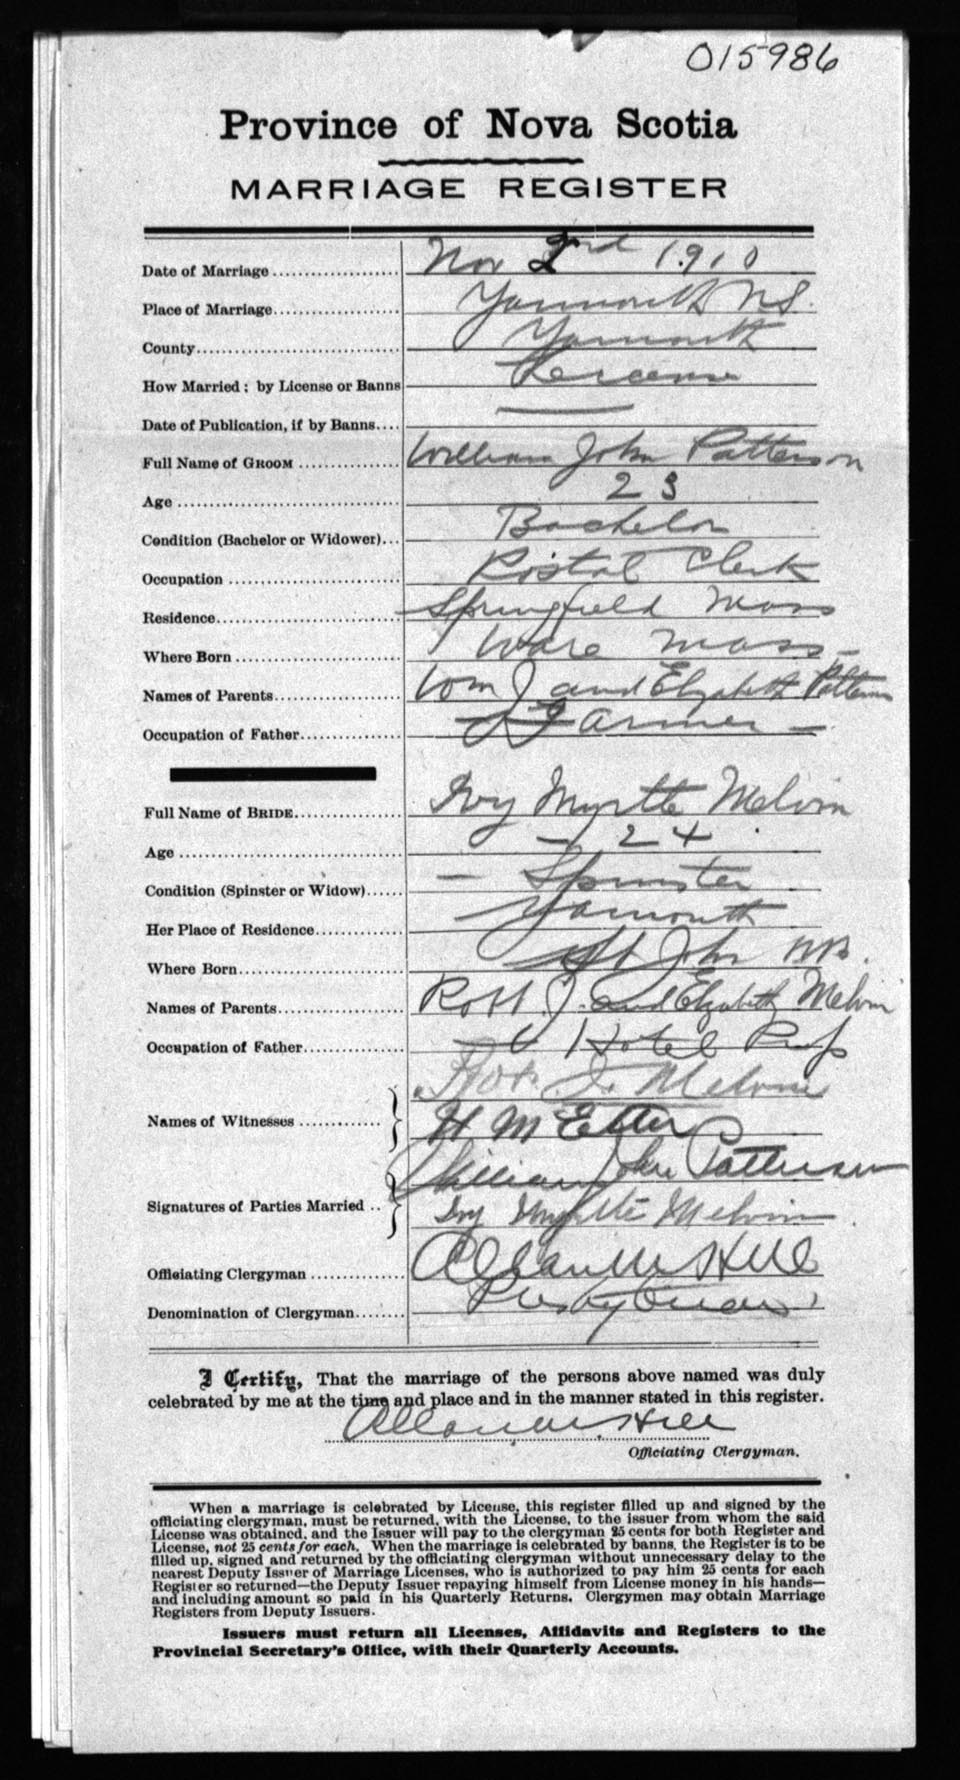 015986
Province of Nova Scotia
MARRIAGE REGISTER
Date of Marriage Nov 2nd 1910
Place of Marriage Yarmouth NS.
County Yarmouth
How Married: by License or Banns License
Date of Publication, if by Banns —
Full Name of GROOM William John Patterson
Age 23
Condition (Bachelor or Widower) Bachelor
Occupation Postal Clerk
Residence Springfield Mass
Where Born Ware Mass
Names of Parents Wm J and Elizabeth Patterson
Occupation of Father Farmer —
Full Name of BRIDE Ivy Myrtle Melvin
Age — 24
Condition (Spinster or Widow) — Spinster
Her Place of Residence Yarmouth
Where Born St John NB.
Names of Parents Robt. J. and Elizabeth Melvin
Occupation of Father Hotel Prop
Names of Witnesses Robt. J. Melvin
H M Etter
Signatures of Parties Married William John Patterson
Ivy Myrtle Melvin
Officiating Clergyman Hill
Denomination of Clergyman Presbyterian
I Certify, That the marriage of the persons above named was duly
celebrated by me at the time and place and in the manner stated in this register.
Hill
Officiating Clergyman.
When a marriage is celebrated by License, this register filled up and signed by the
officiating clergyman, must be returned, with the License, to the issuer from whom the said
License was obtained, and the Issuer will pay to the clergyman 25 cents for both Register and
License, not 25 cents for each. When the marriage is celebrated by banns, the Register is to be
filled up, signed and returned by the officiating clergyman without unnecessary delay to the
nearest Deputy Issuer of Marriage Licenses, who is authorized to pay him 25 cents for each
Register so returned—the Deputy Issuer repaying himself from License money in his hands—
and including amount so paid in his Quarterly Returns. Clergymen may obtain Marriage
Registers from Deputy Issuers.
Issuers must return all Licenses, Affidavits and Registers to the
Provincial Secretary's Office, with their Quarterly Accounts.